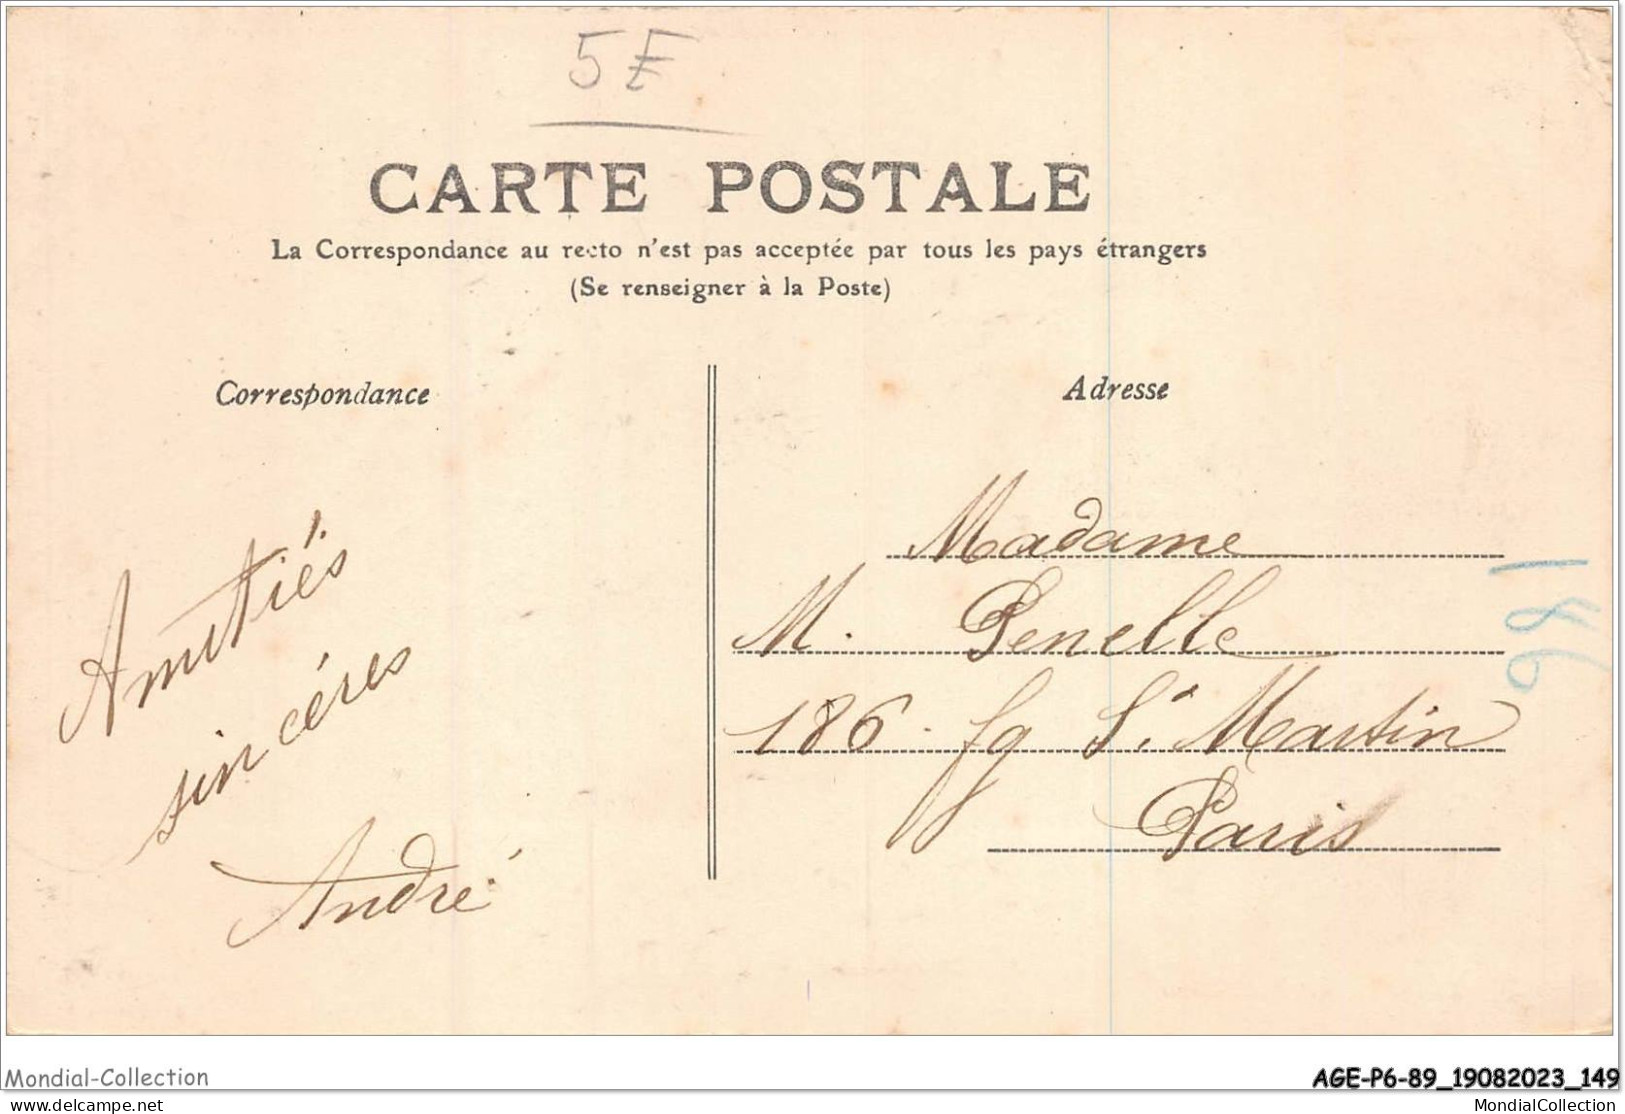 5E
CARTE POSTALE
La Correspondance au recto n'est pas acceptée par tous les pays étrangers
(Se renseigner à la Poste)
Correspondance
Adresse
Amitiés
sincéres
André
Madame
M. Penelle
186. fg St Martin
Paris
186
Mondial-Collection
AGE-P6-89_19082023_149
delcampe.net
MondialCollection